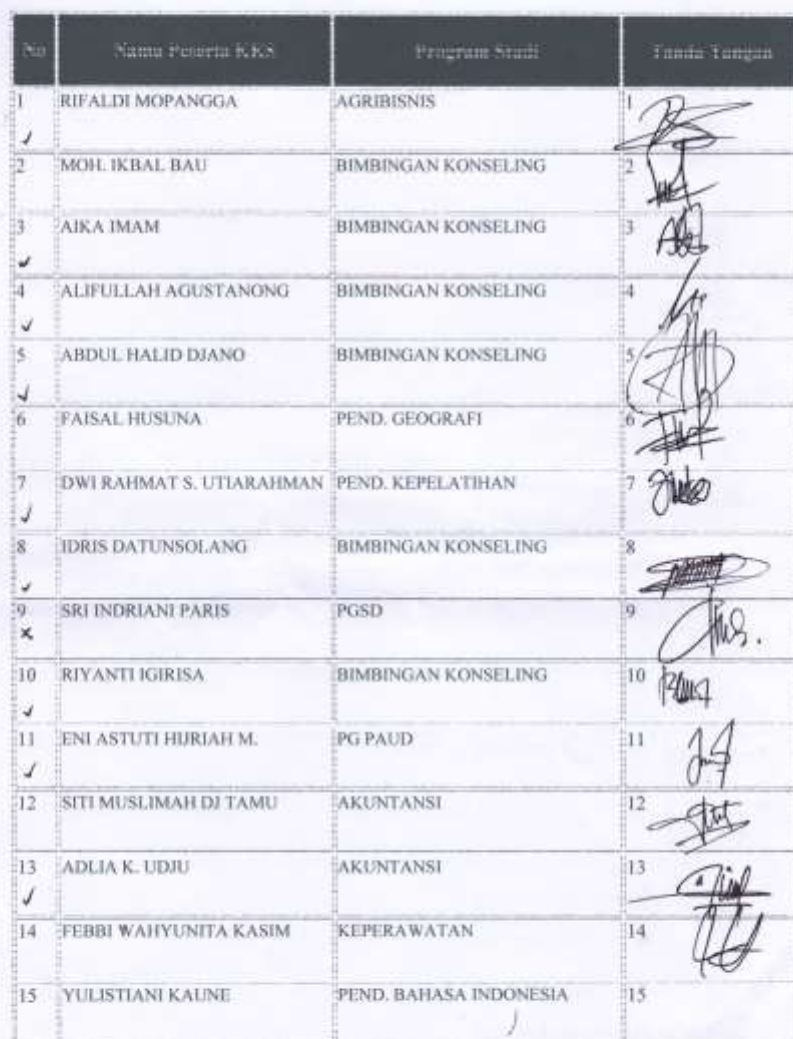 No Nama Peserta KKS Program Studi Tanda Tangan
1 RIFALDI MOPANGGA AGRIBISNIS 1
2 MOH. IKBAL BAU BIMBINGAN KONSELING 2
3 AIKA IMAM BIMBINGAN KONSELING 3
4 ALIFULLAH AGUSTANONG BIMBINGAN KONSELING 4
5 ABDUL HALID DJANO BIMBINGAN KONSELING 5
6 FAISAL HUSUNA PEND. GEOGRAFI 6
7 DWI RAHMAT S. UTIARAHMAN PEND. KEPELATIHAN 7
8 IDRIS DATUNSOLANG BIMBINGAN KONSELING 8
9 SRI INDRIANI PARIS PGSD 9
10 RIYANTI IGIRISA BIMBINGAN KONSELING 10
11 ENI ASTUTI HIJRIAH M. PG PAUD 11
12 SITI MUSLIMAH DJ TAMU AKUNTANSI 12
13 ADLIA K. UDJU AKUNTANSI 13
14 FEBBI WAHYUNITA KASIM KEPERAWATAN 14
15 YULISTIANI KAUNE PEND. BAHASA INDONESIA 15